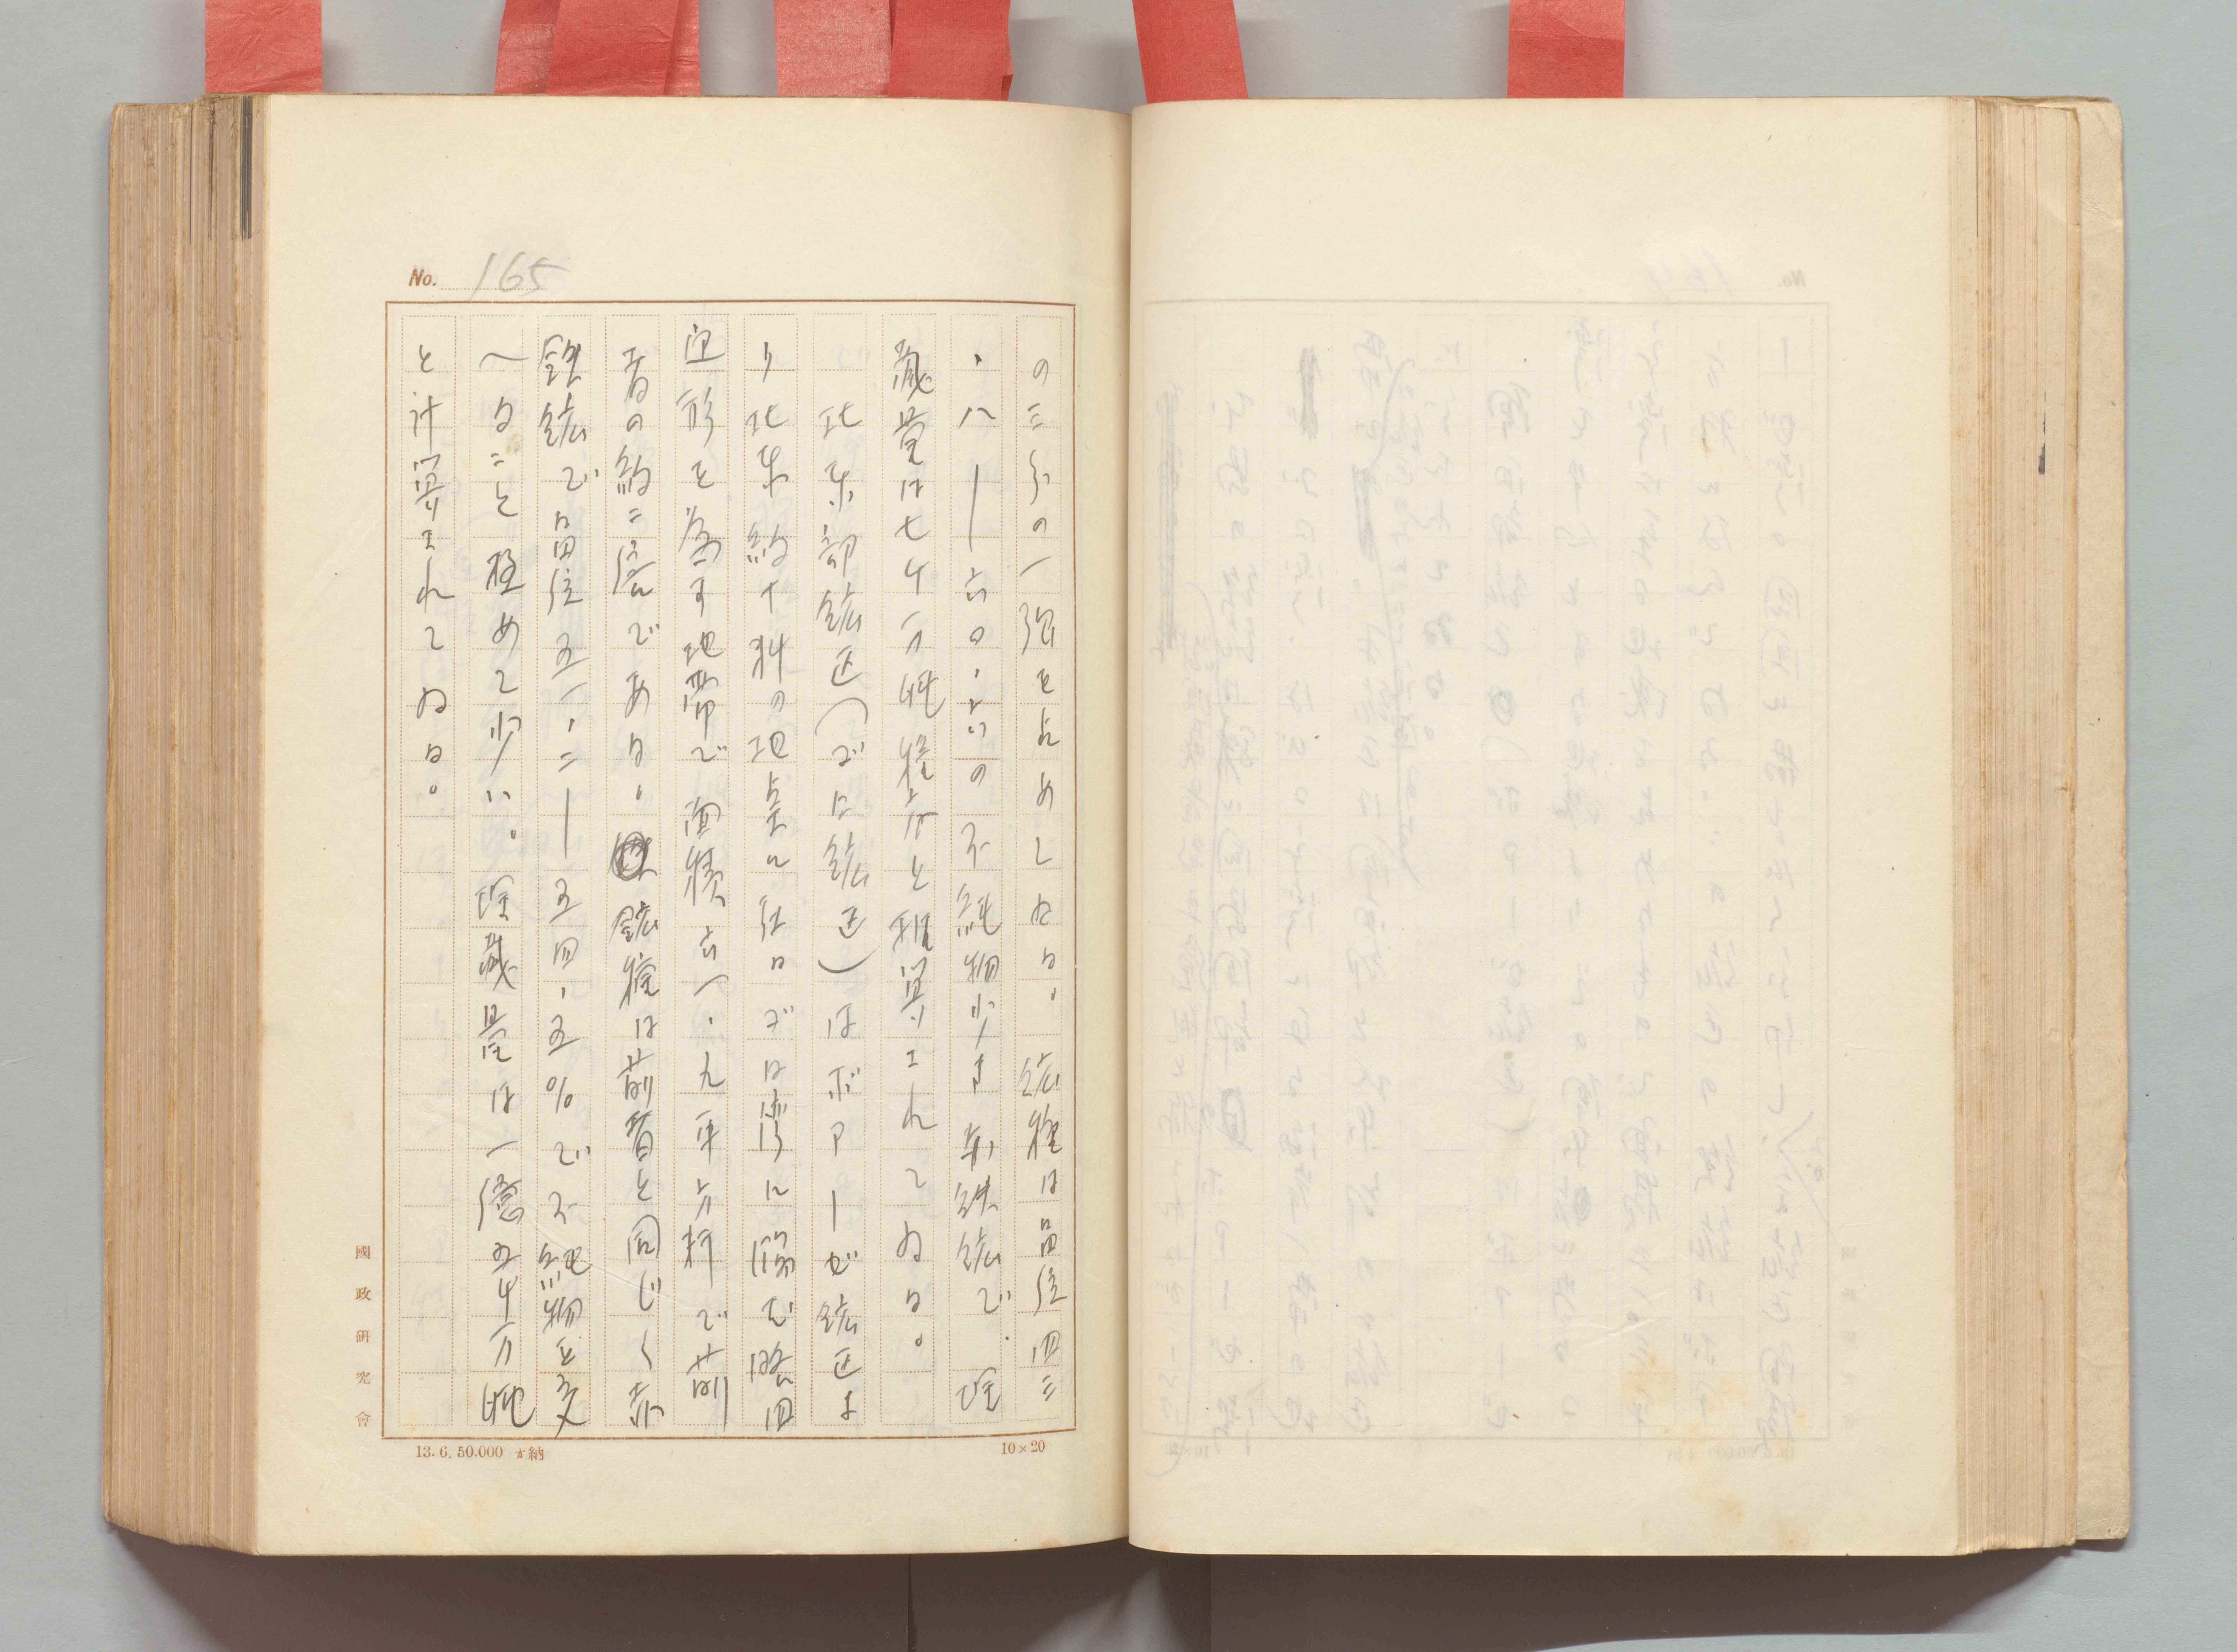 No. 165
の三分の一強を占めてゐる。鉱種は品位四三
・八—六〇・六の不純物少き赤鉄鉱で 埋
蔵量は七千万噸程度と推算されてゐる。
北東部鉱区(ボに鉱区)はボアーゼ鉱区よ
り北東約十粁の地点に在り
形を為す地帯で面積六一・九平方粁で前
者の約二倍である。鉱種は前者と同じく赤
鉄鉱で品位五一・二—五四・五%で不純物を交
へること極めて少い。埋蔵量は一億五千万噸
と計算されてゐる。
國政研究會
13.6.50.000 納
10×20